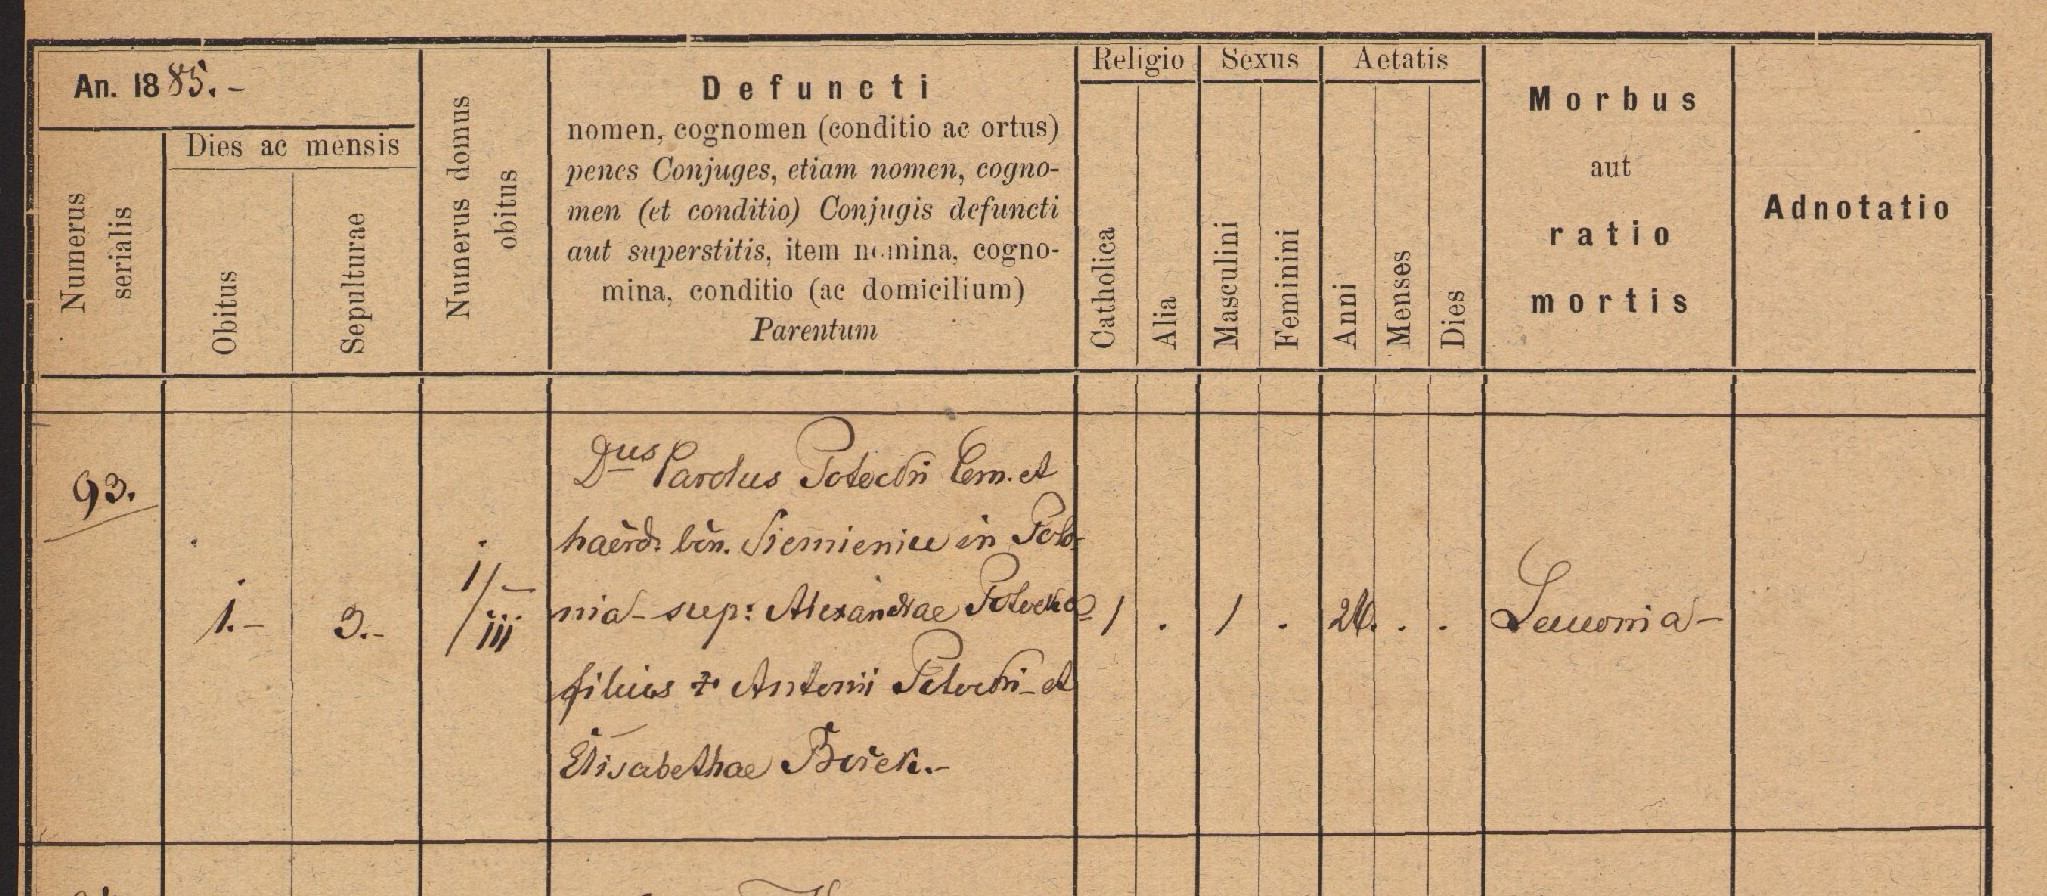 An. 1885.-
Numerus serialis
Dies ac mensis
Obitus
Sepulturae
Numerus domus obitus
Defuncti
nomen, cognomen (conditio ac ortus)
penes Conjuges, etiam nomen, cogno-
men (et conditio) Conjugis defuncti
aut superstitis, item nomina, cogno-
mina, conditio (ac domicilium)
Parentum
Religio
Catholica
Alia
Sexus
Masculini
Feminini
Aetatis
Anni
Menses
Dies
Morbus
aut
ratio
mortis
Adnotatio
93.
1.-
3.-
1/iii
Dus Carolus Potocki Em. et
haerd. bon. Siemienice in Polo-
nia - sup: Alexandrae Potocka
filius + Antonii Potocki et
Elisabethae Borek.-
1 . 1 . . .